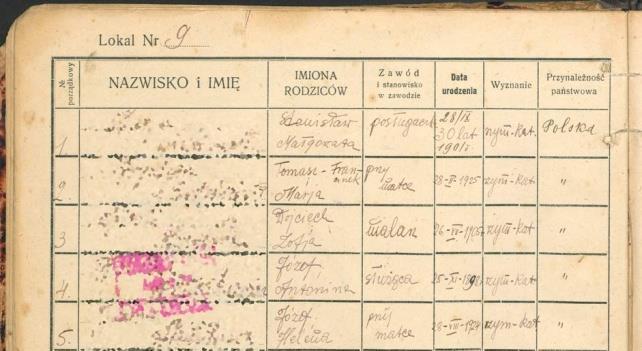 Lokal Nr 9
№ porządkowy
NAZWISKO i IMIĘ
IMIONA
RODZICÓW
Zawód
i stanowisko
w zawodzie
Data
urodzenia
Wyznanie
Przynależność
państwowa
1
Stanisław
Małgorzata
28/IX
30 lat
1901 r.
rzym-kat.
Polska
2
Tomasz-Fran-
Marja
przy
matce
1925
rzym-kat
"
3
Zofja
malarz
rzym-kat
"
4.
Józef,
Antonina
służąca
rzym-kat
"
5.
Józef
Helena
przy
matce
rzym-kat
"